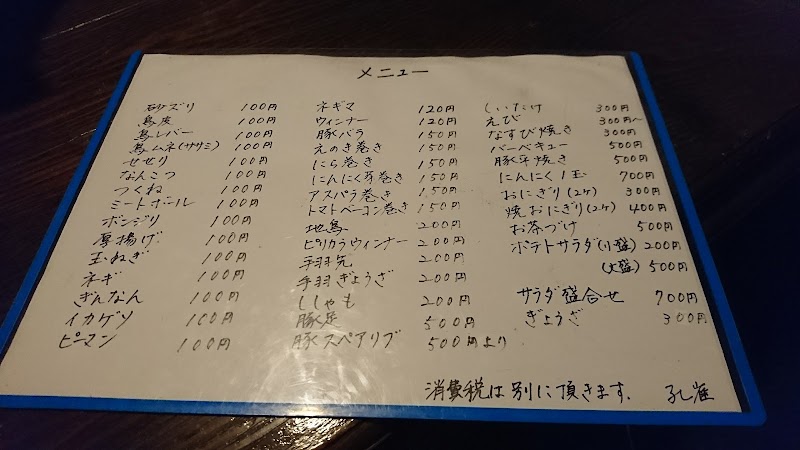 メニュー
砂ズリ 100円
鳥皮 100円
鳥レバー 100円
鳥ムネ(ササミ) 100円
せせり 100円
なんこつ 100円
つくね 100円
ミートボール 100円
ボンジリ 100円
厚揚げ 100円
玉ねぎ 100円
ネギ 100円
ぎんなん 100円
イカゲソ 100円
ピーマン 100円
ネギマ 120円
ウィンナー 120円
豚バラ 150円
えのき巻き 150円
にら巻き 150円
にんにく芽巻き 150円
アスパラ巻き 150円
トマトベーコン巻き 150円
地鳥 200円
ピリカラウィンナー 200円
手羽先 200円
手羽ぎょうざ 200円
ししゃも 200円
豚足 500円
豚スペアリブ 500円より
しいたけ 300円
えび 300円〜
なすび焼き 300円
バーベキュー 500円
豚平焼き 500円
にんにく1玉 700円
おにぎり(2ケ) 300円
焼おにぎり(2ケ) 400円
お茶づけ 500円
ポテトサラダ(小盛) 200円
(大盛) 500円
サラダ盛合せ 700円
ぎょうざ 300円
消費税は別に頂きます. 孔雀